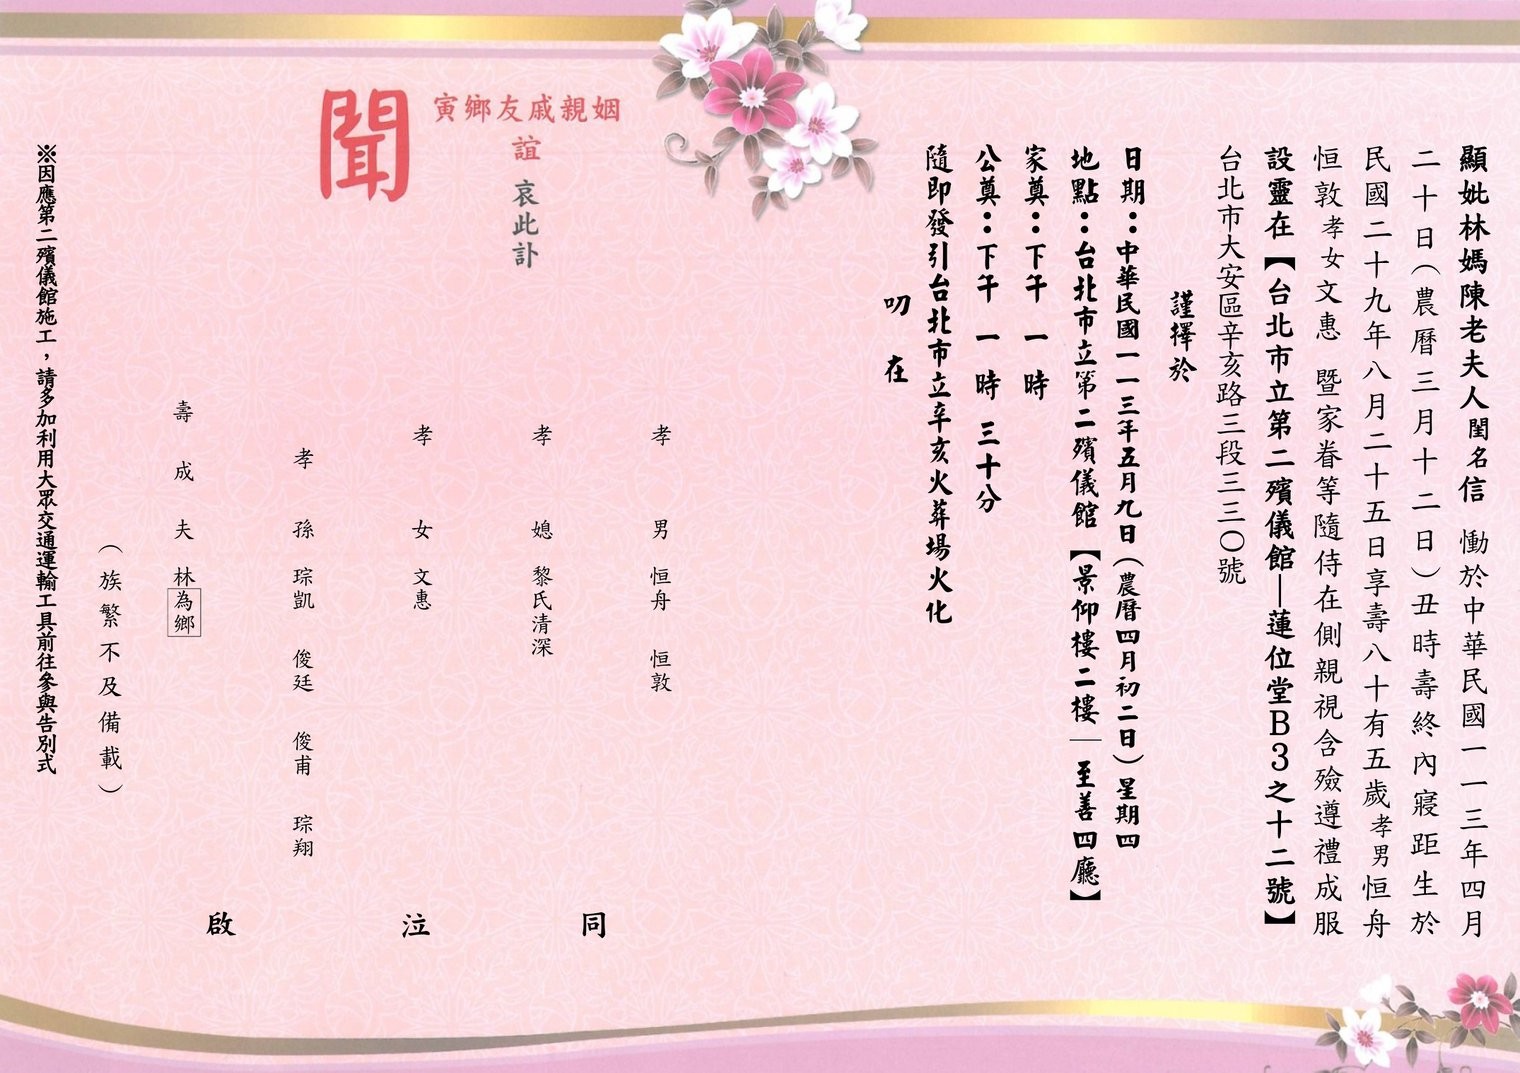 顯妣林媽陳老夫人閨名信 慟於中華民國一一三年四月
二十日(農曆三月十二日)丑時壽終內寢距生於
民國二十九年八月二十五日享壽八十有五歲孝男恒舟
恒敦孝女文惠 暨家眷等隨侍在側親視含殮遵禮成服
設靈在【台北市立第二殯儀館—蓮位堂B3之十二號】
台北市大安區辛亥路三段三三〇號
謹擇於
日期：中華民國一一三年五月九日(農曆四月初二日)星期四
地點：台北市立第二殯儀館【景仰樓二樓—至善四廳】
家奠：下午 一 時
公奠：下午 一 時 三十分
隨即發引台北市立辛亥火葬場火化
叨 在
寅鄉友戚親姻
誼 哀此訃
聞
孝 男 恒舟 恒敦
孝 媳 黎氏清深
孝 女 文惠
孝 孫 琮凱 俊廷 俊甫 琮翔
壽 成 夫 林為鄉
同 泣 啟
(族繁不及備載)
※因應第二殯儀館施工，請多加利用大眾交通運輸工具前往參與告別式